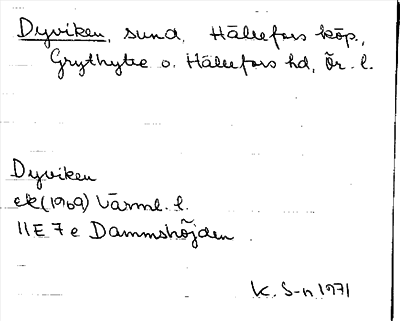 Dyviken, sund, Hällefors köp.,
Grythytte o. Hällefors hd, Ör. l.
Dyviken
ek (1969) Värml. l.
11E 7e Dammshöjden
K. S-n 1971